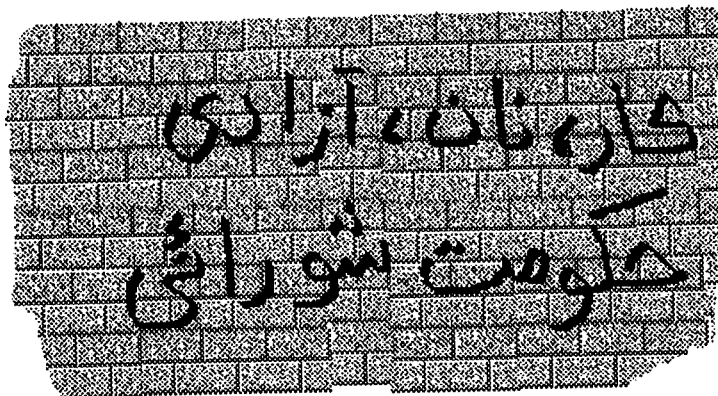 کار، نان، آزادی
حکومت شورائی